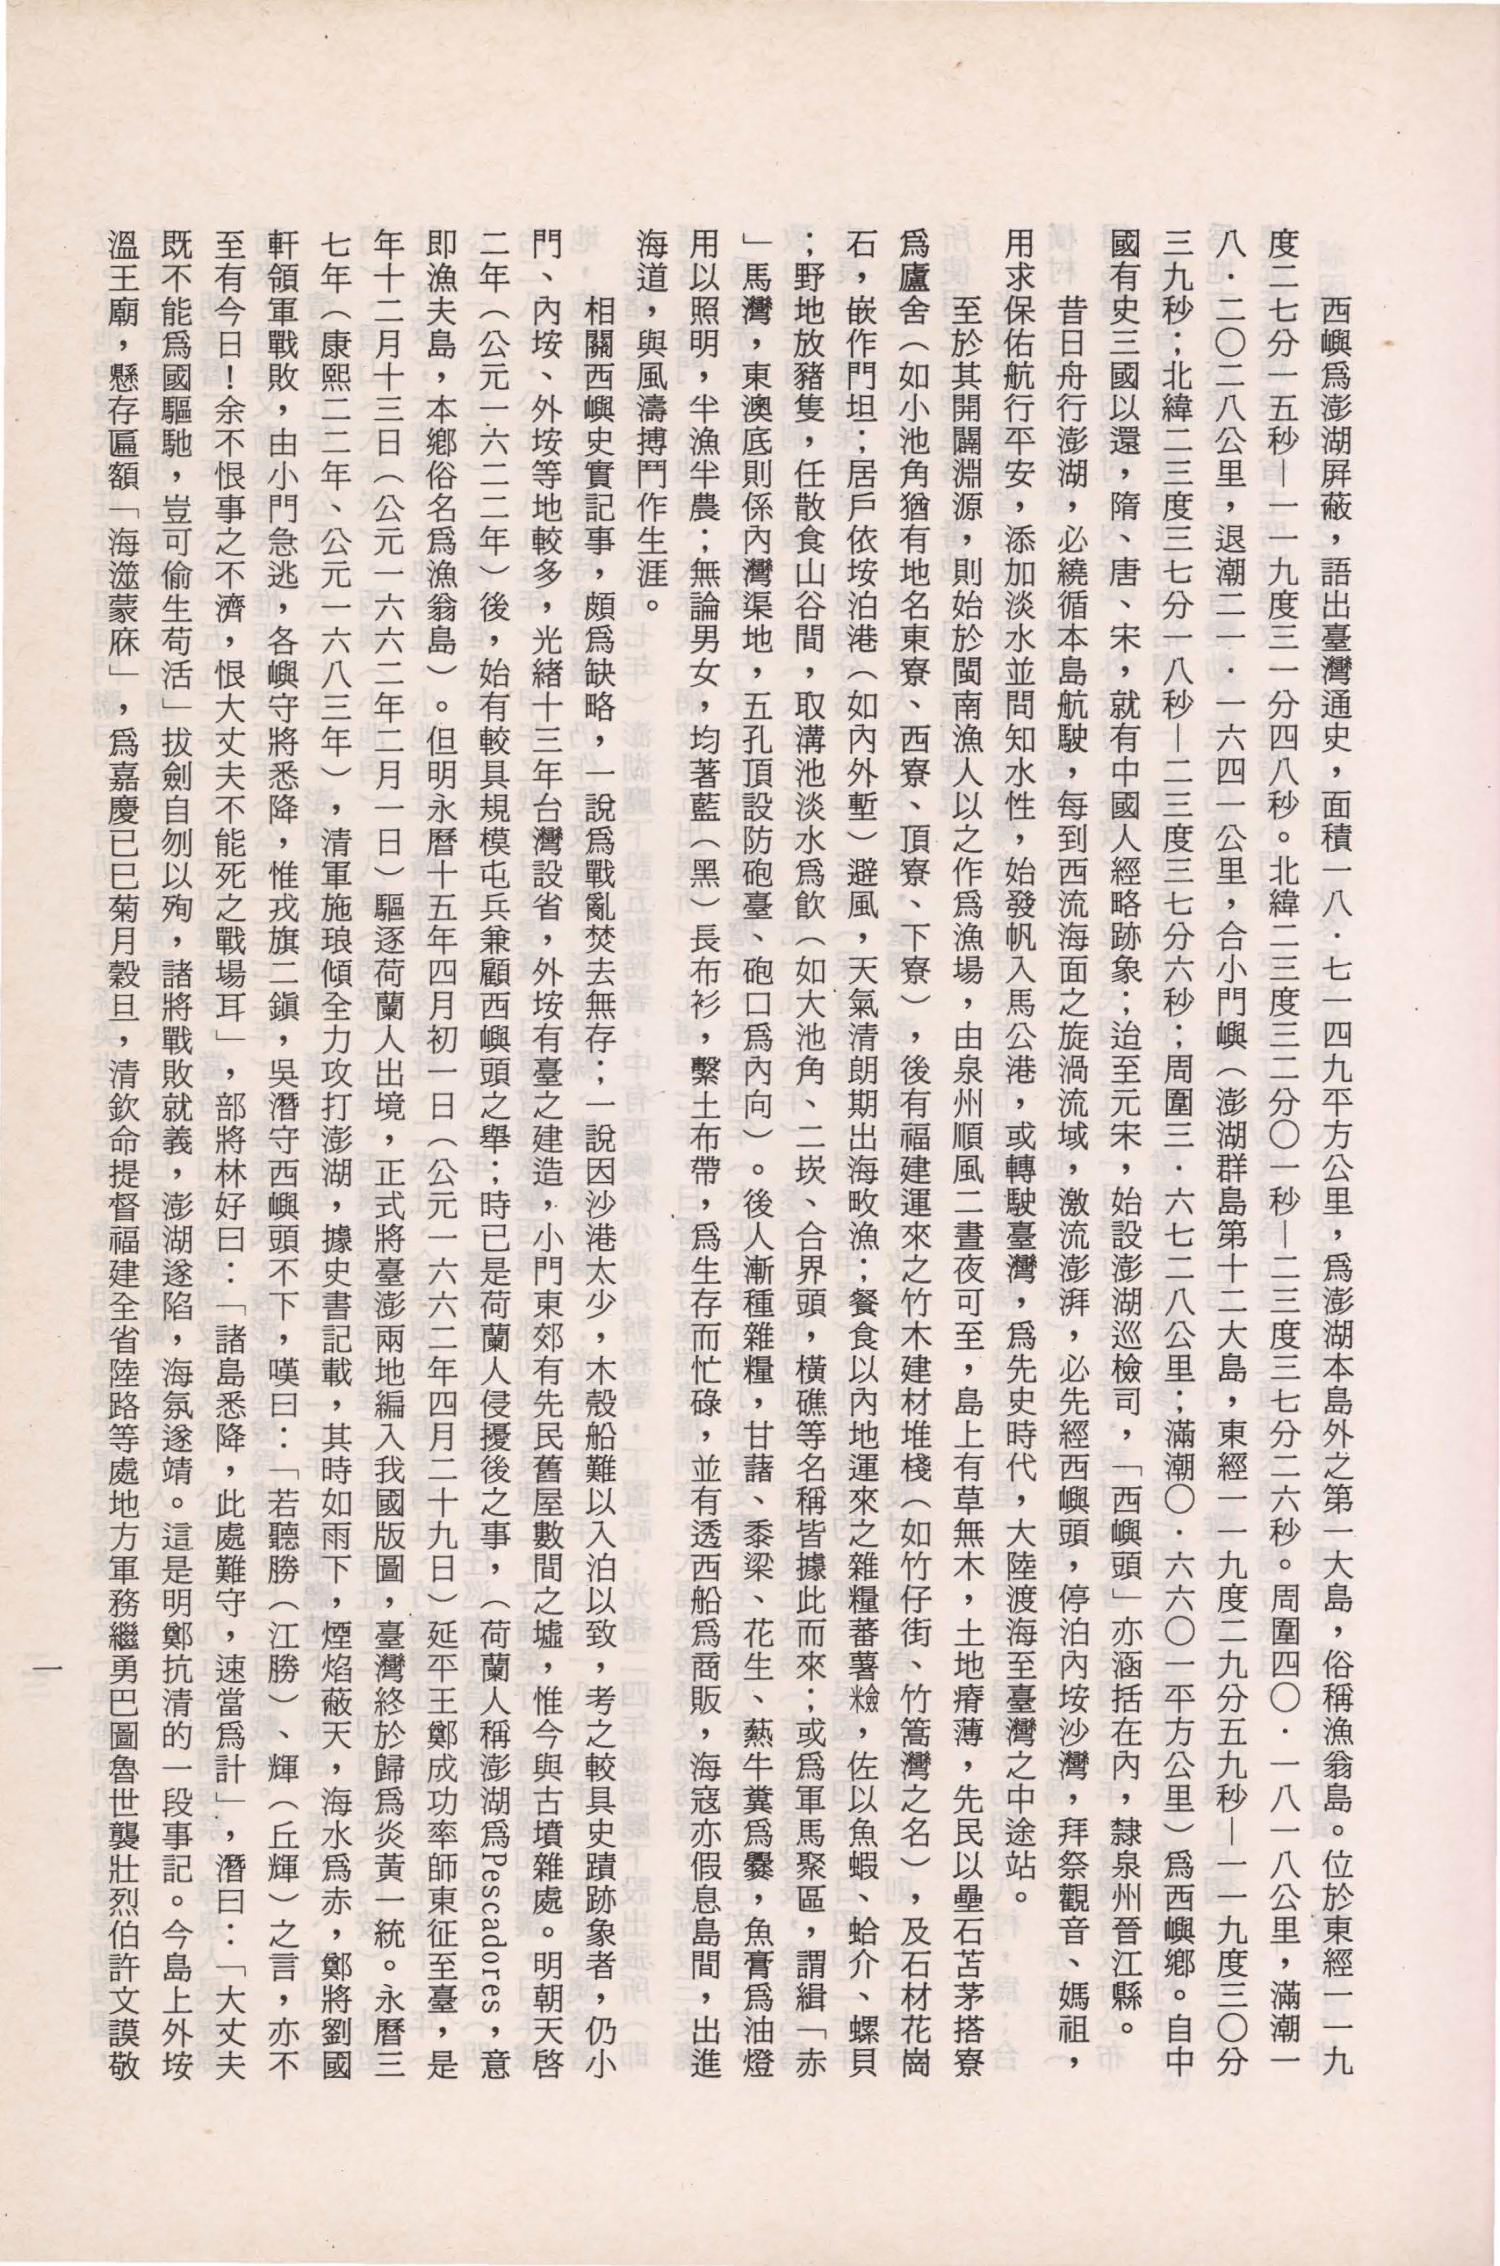 西嶼為澎湖屏蔽，語出臺灣通史，面積一八．七一四九平方公里，為澎湖本島外之第一大島，俗稱漁翁島。位於東經一一九
度二七分一五秒—一一九度三一分四八秒。北緯二三度三二分〇一秒—二三度三七分二六秒。周圍四〇．一八一八公里，滿潮一
八．二〇二八公里，退潮二一．一六四一公里，合小門嶼（澎湖群島第十二大島，東經一一九度二九分五九秒—一一九度三〇分
三九秒；北緯二三度三七分一八秒—二三度三七分六秒；周圍三．六七二八公里；滿潮〇．六六〇一平方公里）為西嶼鄉。自中
國有史三國以還，隋、唐、宋，就有中國人經略跡象；迨至元宋，始設澎湖巡檢司，「西嶼頭」亦涵括在內，隸泉州晉江縣。
昔日舟行澎湖，必繞循本島航駛，每到西流海面之旋渦流域，激流澎湃，必先經西嶼頭，停泊內垵沙灣，拜祭觀音、媽祖，
用求保佑航行平安，添加淡水並問知水性，始發帆入馬公港，或轉駛臺灣，為先史時代，大陸渡海至臺灣之中途站。
至於其開闢淵源，則始於閩南漁人以之作為漁場，由泉州順風二晝夜可至，島上有草無木，土地瘠薄，先民以壘石苫茅搭寮
為廬舍（如小池角猶有地名東寮、西寮、頂寮、下寮），後有福建運來之竹木建材堆棧（如竹仔街、竹篙灣之名），及石材花崗
石，嵌作門坦；居戶依垵泊港（如內外塹）避風，天氣清朗期出海畋漁；餐食以內地運來之雜糧蕃薯𥽋，佐以魚蝦、蛤介、螺貝
；野地放豬隻，任散食山谷間，取溝池淡水為飲（如大池角、二崁、合界頭，橫礁等名稱皆據此而來；或為軍馬聚區，謂緝「赤
」馬灣，東澳底則係內灣渠地，五孔頂設防砲臺、砲口為內向）。後人漸種雜糧，甘藷、黍梁、花生、爇牛糞為爨，魚膏為油燈
用以照明，半漁半農；無論男女，均著藍（黑）長布衫，繫土布帶，為生存而忙碌，並有透西船為商販，海寇亦假息島間，出進
海道，與風濤搏鬥作生涯。
相關西嶼史實記事，頗為缺略，一說為戰亂焚去無存；一說因沙港太少，木殼船難以入泊以致，考之較具史蹟跡象者，仍小
門、內垵、外垵等地較多，光緒十三年台灣設省，外垵有臺之建造，小門東郊有先民舊屋數間之墟，惟今與古墳雜處。明朝天啓
二年（公元一六二二年）後，始有較具規模屯兵兼顧西嶼頭之舉；時已是荷蘭人侵擾後之事，（荷蘭人稱澎湖為Pescadores，意
即漁夫島，本鄉俗名為漁翁島）。但明永曆十五年四月初一日（公元一六六二年四月二十九日）延平王鄭成功率師東征至臺，是
年十二月十三日（公元一六六二年二月一日）驅逐荷蘭人出境，正式將臺澎兩地編入我國版圖，臺灣終於歸為炎黃一統。永曆三
七年（康熙二二年、公元一六八三年），清軍施琅傾全力攻打澎湖，據史書記載，其時如雨下，煙焰蔽天，海水為赤，鄭將劉國
軒領軍戰敗，由小門急逃，各嶼守將悉降，惟戎旗二鎮，吳潛守西嶼頭不下，嘆曰：「若聽勝（江勝）、輝（丘輝）之言，亦不
至有今日！余不恨事之不濟，恨大丈夫不能死之戰場耳」，部將林好曰：「諸島悉降，此處難守，速當為計」，潛曰：「大丈夫
既不能為國驅馳，豈可偷生苟活」拔劍自刎以殉，諸將戰敗就義，澎湖遂陷，海氛遂靖。這是明鄭抗清的一段事記。今島上外垵
溫王廟，懸存匾額「海澨蒙庥」，為嘉慶已巳菊月穀旦，清欽命提督福建全省陸路等處地方軍務繼勇巴圖魯世襲壯烈伯許文謨敬
一